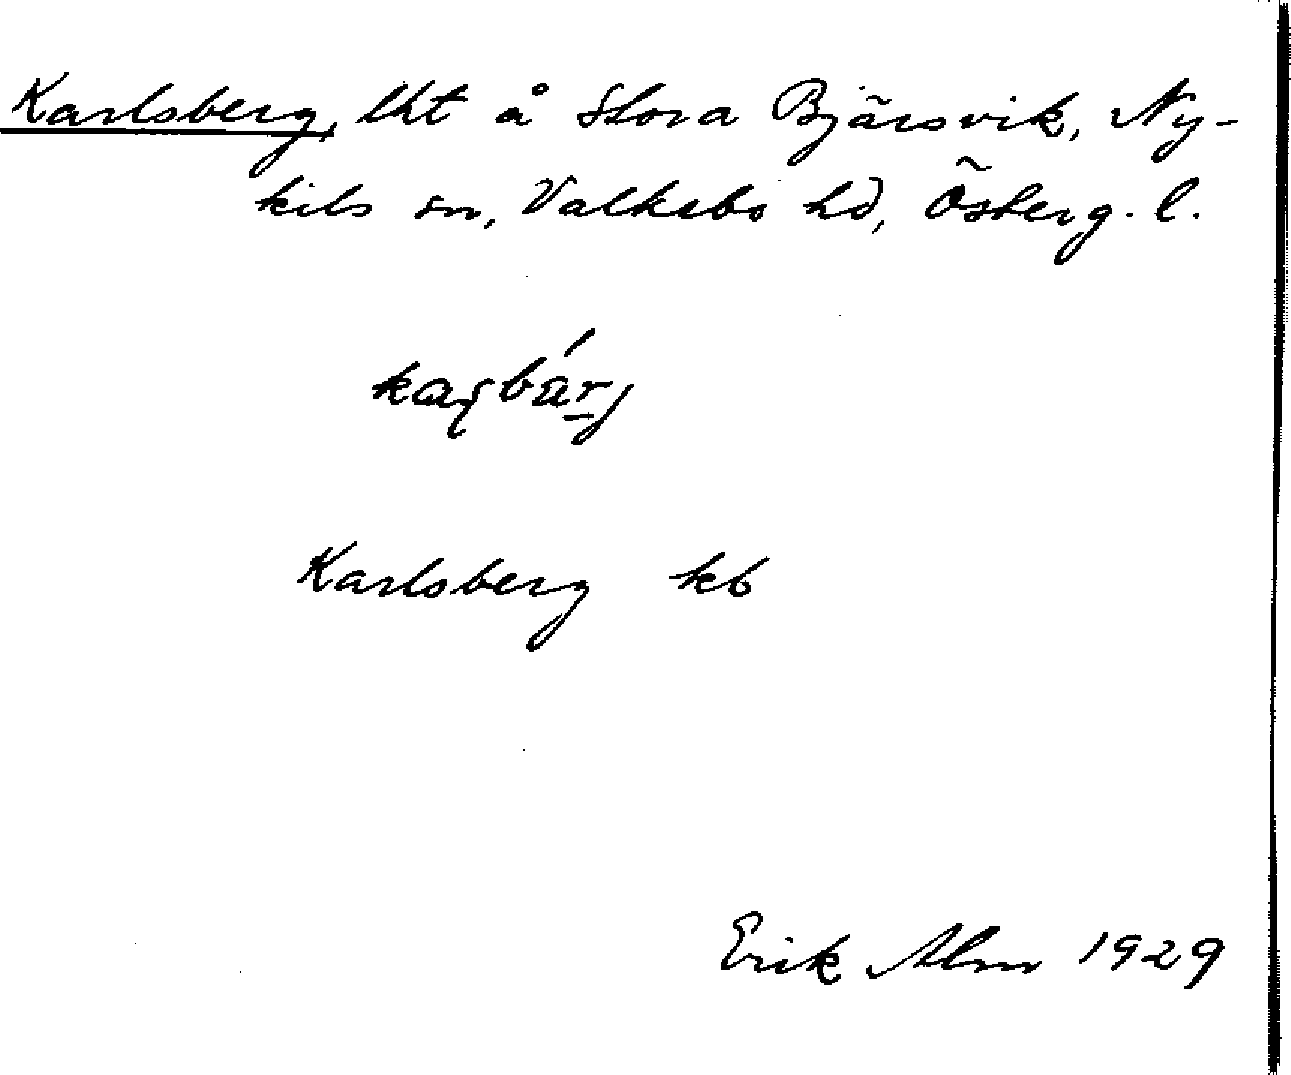 Karlsberg, lht å Stora Bjärsvik, Ny-
kils sn, Valkebo hd, Österg. l.
Karlsberg kb
Erik Alm 1929